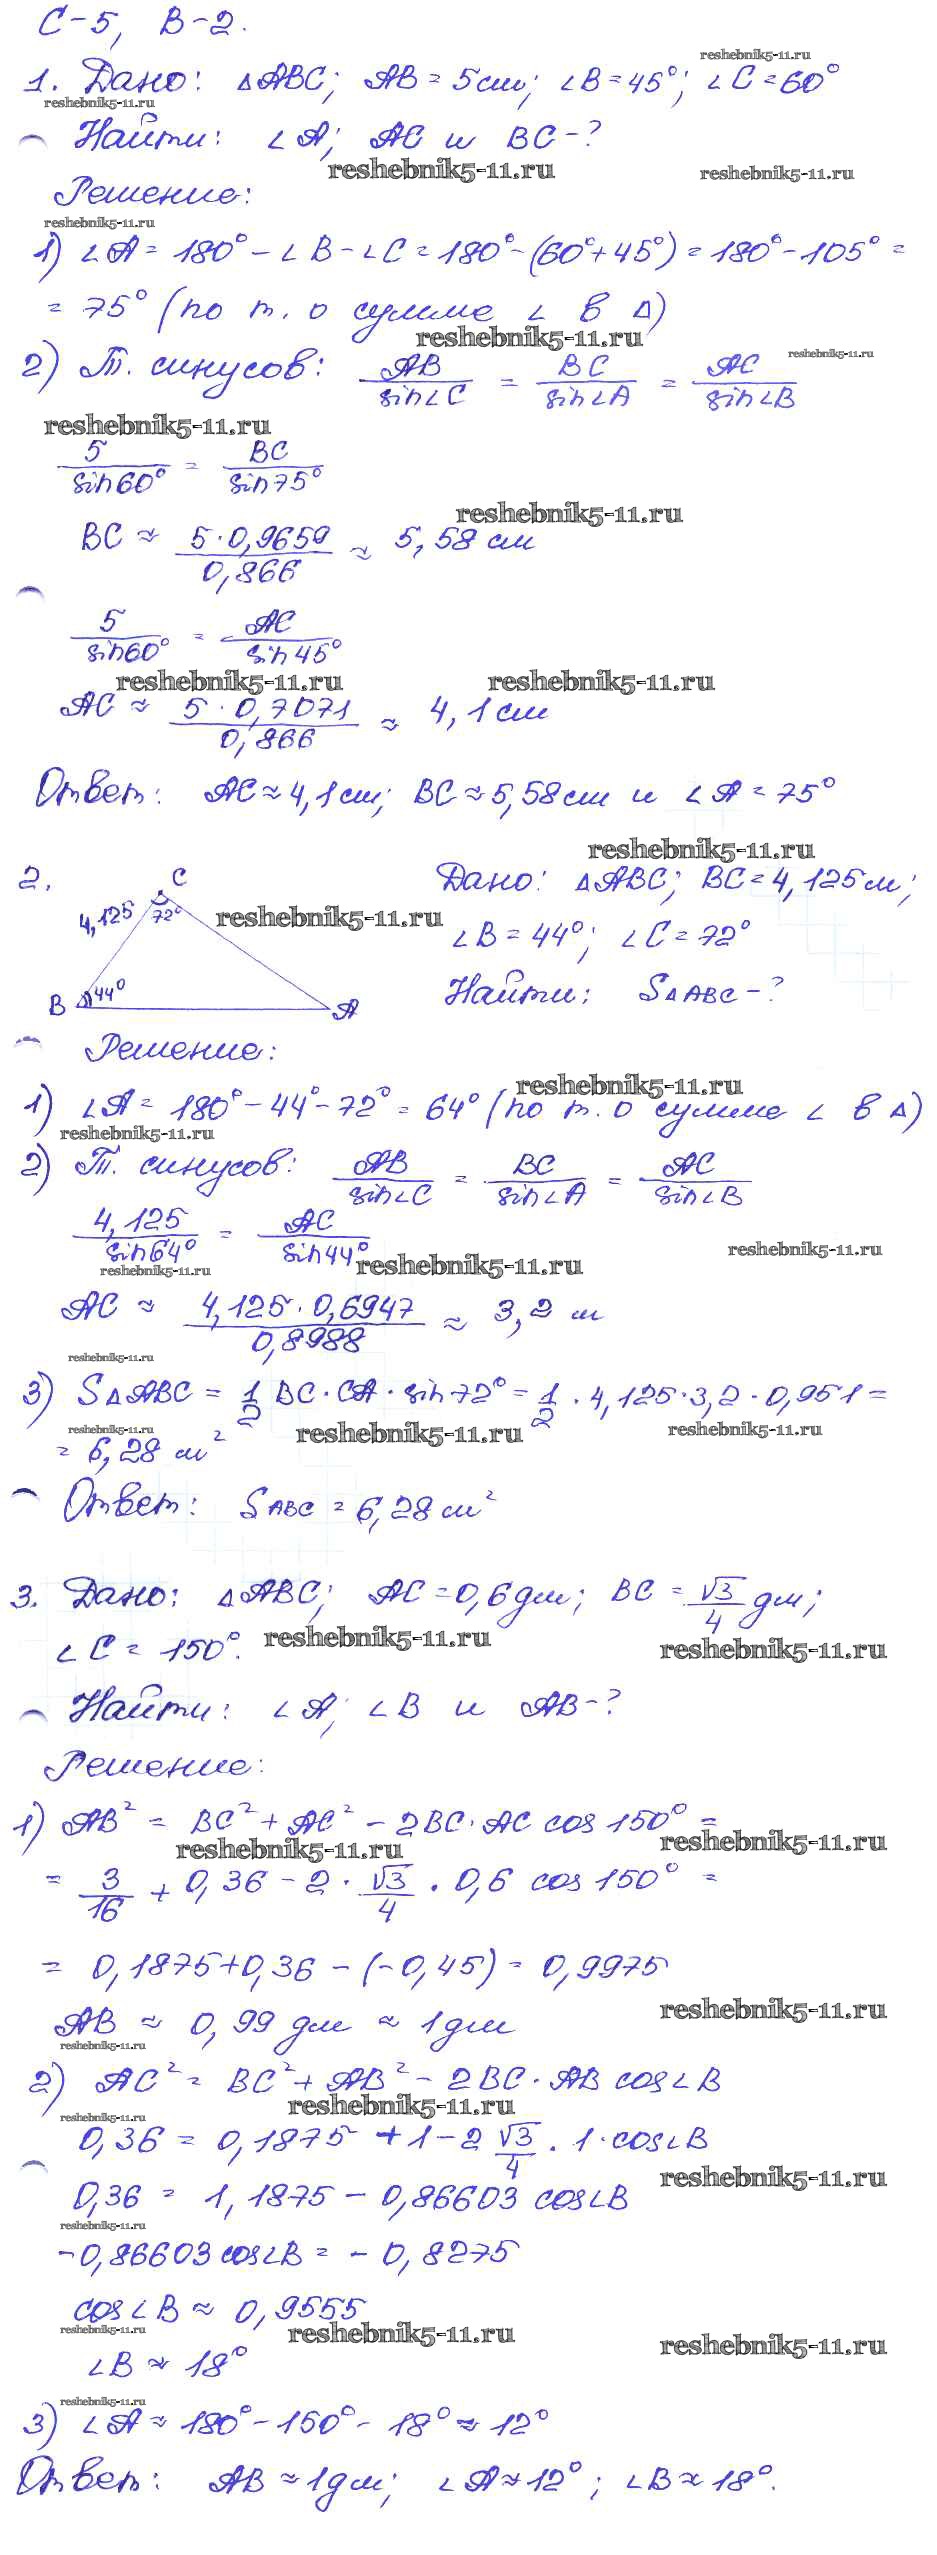 С-5, В-2.
reshebnik5-11.ru
1. Дано: △ABC; AB = 5 см; ∠B = 45°; ∠C = 60°
reshebnik5-11.ru
Найти: ∠A; AC и BC - ?
reshebnik5-11.ru reshebnik5-11.ru
Решение:
reshebnik5-11.ru
1) ∠A = 180° - ∠B - ∠C = 180° - (60° + 45°) = 180° - 105° =
= 75° (по т. о сумме ∠ в △)
reshebnik5-11.ru
reshebnik5-11.ru
2) Т. синусов: AB/sin∠C = BC/sin∠A = AC/sin∠B
reshebnik5-11.ru
5/sin60° = BC/sin75°
reshebnik5-11.ru
BC ≈ 5·0,9659/0,866 ≈ 5,58 см
5/sin60° = AC/sin45°
reshebnik5-11.ru reshebnik5-11.ru
AC ≈ 5·0,7071/0,866 ≈ 4,1 см
Ответ: AC ≈ 4,1 см; BC ≈ 5,58 см и ∠A = 75°
reshebnik5-11.ru
2. C Дано: △ABC; BC = 4,125 м;
4,125 72° reshebnik5-11.ru
∠B = 44°; ∠C = 72°
B 44° A Найти: S△ABC - ?
Решение:
reshebnik5-11.ru
1) ∠A = 180° - 44° - 72° = 64° (по т. о сумме ∠ в △)
reshebnik5-11.ru
2) Т. синусов: AB/sin∠C = BC/sin∠A = AC/sin∠B
4,125/sin64° = AC/sin44°
reshebnik5-11.ru
reshebnik5-11.ru reshebnik5-11.ru
AC ≈ 4,125·0,6947/0,8988 ≈ 3,2 м
reshebnik5-11.ru
3) S△ABC = 1/2 BC·CA·sin72° = 1/2·4,125·3,2·0,951 =
reshebnik5-11.ru reshebnik5-11.ru reshebnik5-11.ru
= 6,28 м²
Ответ: SABC = 6,28 м²
3. Дано: △ABC; AC = 0,6 дм; BC = √3/4 дм;
∠C = 150°. reshebnik5-11.ru reshebnik5-11.ru
Найти: ∠A; ∠B и AB - ?
Решение:
1) AB² = BC² + AC² - 2BC·AC cos150° =
reshebnik5-11.ru reshebnik5-11.ru
= 3/16 + 0,36 - 2·√3/4·0,6 cos150° =
= 0,1875 + 0,36 - (-0,45) = 0,9975
reshebnik5-11.ru
AB ≈ 0,99 дм ≈ 1 дм
reshebnik5-11.ru
2) AC² = BC² + AB² - 2BC·AB cos∠B
reshebnik5-11.ru
reshebnik5-11.ru
0,36 = 0,1875 + 1 - 2 √3/4·1·cos∠B
reshebnik5-11.ru
0,36 = 1,1875 - 0,86603 cos∠B
reshebnik5-11.ru
-0,86603 cos∠B = -0,8275
cos∠B ≈ 0,9555
reshebnik5-11.ru reshebnik5-11.ru reshebnik5-11.ru
∠B ≈ 18°
reshebnik5-11.ru
3) ∠A ≈ 180° - 150° - 18° ≈ 12°
Ответ: AB ≈ 1 дм; ∠A ≈ 12°; ∠B ≈ 18°.